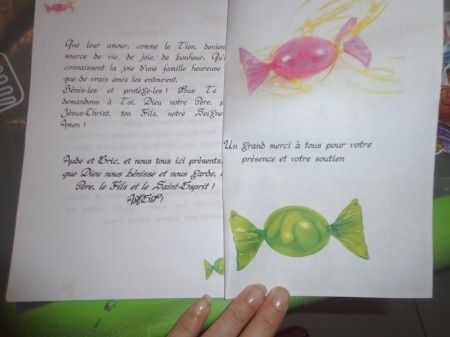 Que leur amour, comme le Tien, devien
source de vie, de joie, de bonheur. Qu'
connaissent la joie d'une famille heureuse
que de vrais amis les entourent.
Bénis-les et protège-les ! Nous Te
demandons à Toi, Dieu notre Père, p
Jésus-Christ, ton Fils, notre Seigne
Amen !
Aude et Eric, et nous tous ici présents,
que Dieu nous bénisse et nous garde,
Père, le Fils et le Saint-Esprit !
Un grand merci à tous pour votre
présence et votre soutien